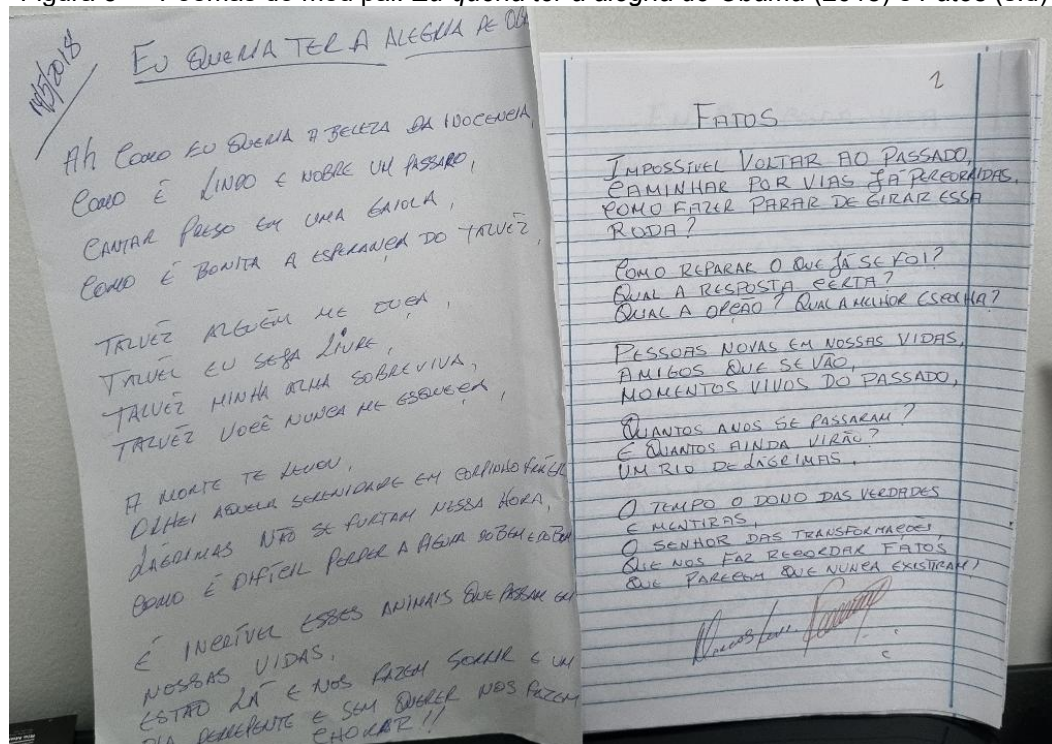 Poemas do meu pai: Eu queria ter a alegria de Obama (2018) e Fatos (s/d)
EU QUERIA TER A ALEGRIA DE
Ah COMO EU QUERIA A BELEZA DA INOCENCIA,
COMO É LINDO E NOBRE UM PASSARO,
CANTAR PRESO EM UMA GAIOLA,
COMO É BONITA A ESPERANÇA DO TALVEZ,
TALVEZ ALGUÉM ME OUÇA,
TALVEZ EU SEJA LIVRE,
TALVEZ MINHA ALMA SOBREVIVA,
TALVEZ VOCÊ NUNCA ME ESQUEÇA,
A MORTE TE LEVOU,
OLHEI AQUELA SERENIDADE EM CORPINHO FRÁGIL
LÁGRIMAS NÃO SE FURTAM NESSA HORA,
COMO É DIFÍCIL PERDER A
É INCRÍVEL ESSES ANIMAIS QUE PASSAM EM
NOSSAS VIDAS,
ESTÃO LÁ E NOS FAZEM SORRIR E UM
DIA DERREPENTE E SEM QUERER NOS FAZEM
CHORAR!!
2
FATOS
IMPOSSÍVEL VOLTAR AO PASSADO,
CAMINHAR POR VIAS JÁ PERCORRIDAS,
COMO FAZER PARAR DE GIRAR ESSA
RODA?
COMO REPARAR O QUE JÁ SE FOI?
QUAL A RESPOSTA CERTA?
QUAL A OPÇÃO? QUAL A MELHOR ESCOLHA?
PESSOAS NOVAS EM NOSSAS VIDAS,
AMIGOS QUE SE VÃO,
MOMENTOS VIVOS DO PASSADO,
QUANTOS ANOS SE PASSARAM?
E QUANTOS AINDA VIRÃO?
UM RIO DE LÁGRIMAS,
O TEMPO O DONO DAS VERDADES
E MENTIRAS,
O SENHOR DAS TRANSFORMAÇÕES
QUE NOS FAZ RECORDAR FATOS
QUE PARECEM QUE NUNCA EXISTIRAM!